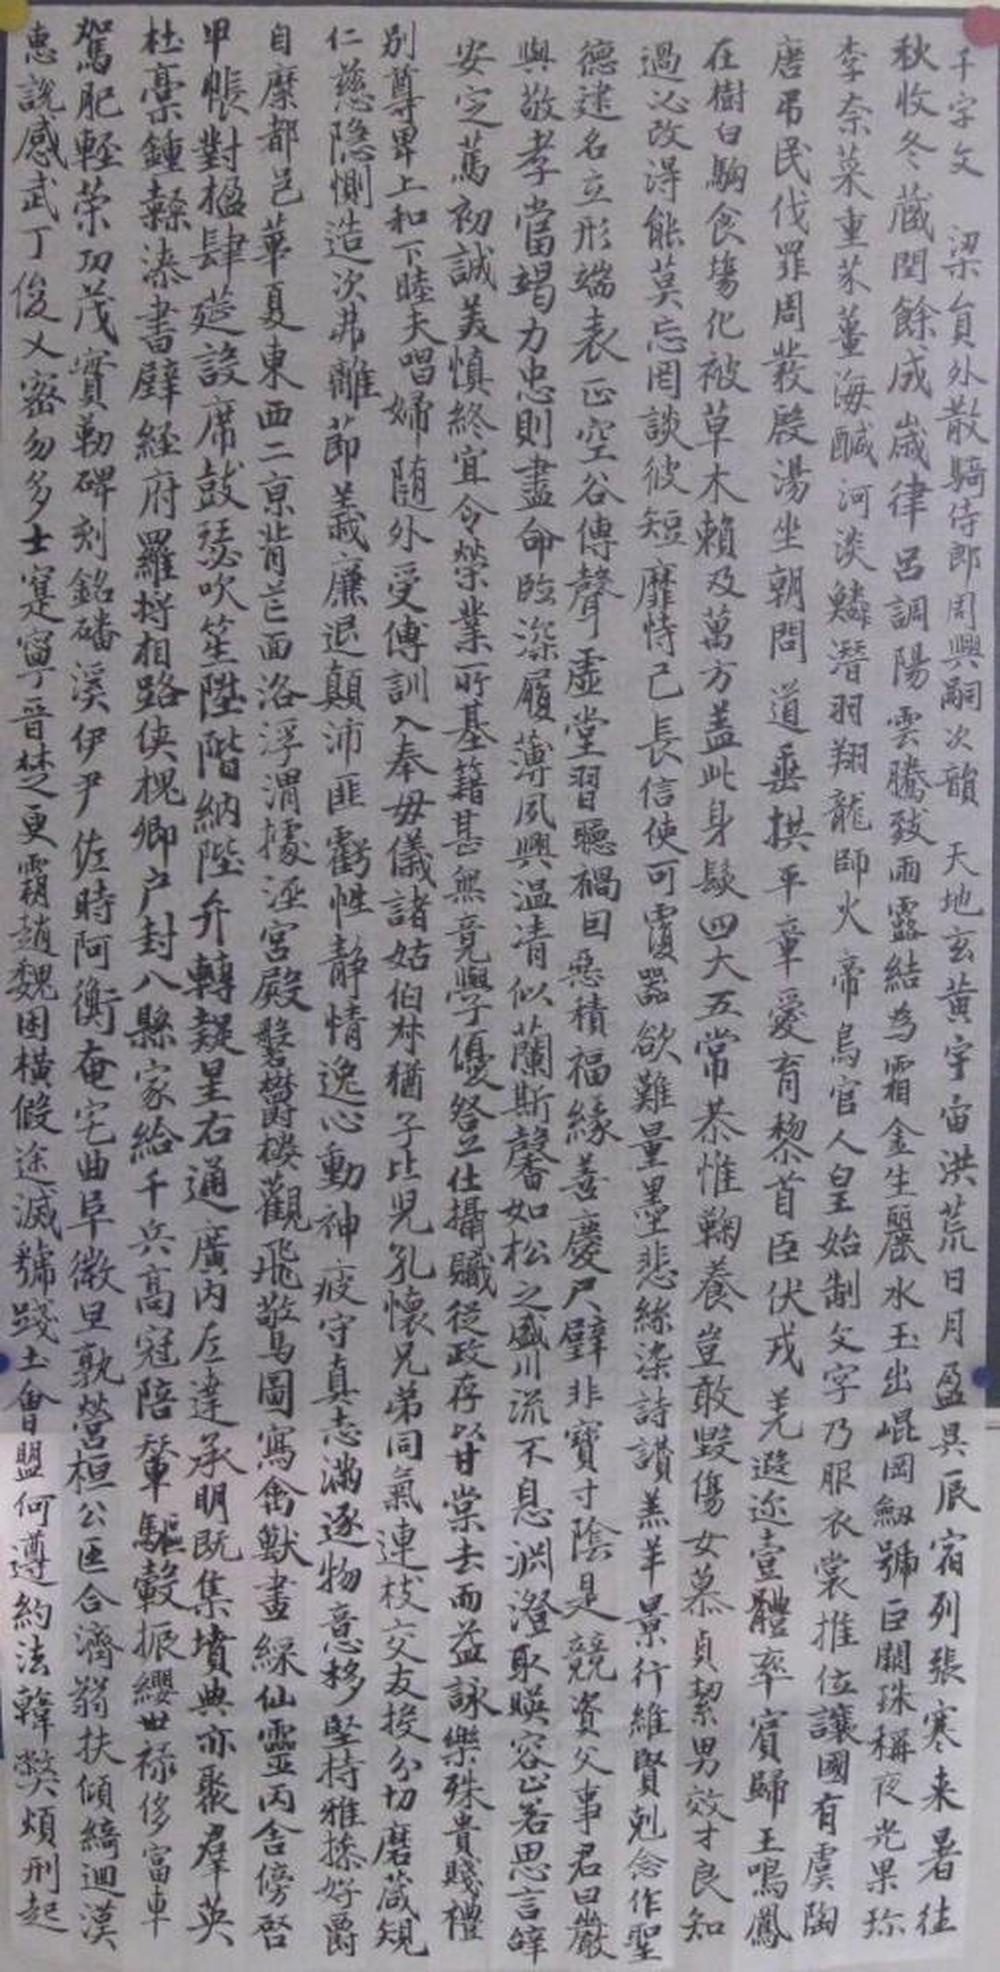 千字文 梁員外散騎侍郎周興嗣次韻 天地玄黃宇宙洪荒日月盈昃辰宿列張寒来暑往
秋收冬藏閏餘成歲律呂調陽雲騰致雨露結為霜金生麗水玉出崐岡劔號巨闕珠稱夜光果珎
李奈菜重芥薑海醎河淡鱗潛羽翔龍師火帝鳥官人皇始制文字乃服衣裳推位讓國有虞陶
唐弔民伐罪周發殷湯坐朝問道垂拱平章愛育黎首臣伏戎羌遐迩壹體率賓歸王鳴鳳
在樹白駒食場化被草木賴及萬方盖此身髮四大五常恭惟鞠養豈敢毀傷女慕貞絜男效才良知
過必改淂能莫忘罔談彼短靡恃己長信使可覆器欲難量墨悲絲染詩讃羔羊景行維賢剋念作聖
德建名立形端表正空谷傳聲虛堂習聽禍因惡積福緣善慶尺璧非寶寸陰是競資父事君曰嚴
與敬孝當竭力忠則盡命臨深履薄夙興温凊似蘭斯馨如松之盛川流不息淵澄取暎容止若思言辝
安定萬初誠美慎終宜令榮業所基籍甚無竟學優登仕攝職從政存以甘棠去而益詠樂殊貴賤禮
別尊卑上和下睦夫唱婦随外受傅訓入奉母儀諸姑伯叔猶子比兒孔懷兄弟同氣連枝交友投分切磨葴規
仁慈隐惻造次弗離節義廉退顛沛匪虧性静情逸心動神疲守真志滿逐物意移堅持雅操好爵
自縻都邑華夏東西二京背芒面洛浮渭據涇宮殿磐欝楼觀飛驚圖寫禽獸畫綵仙靈丙舎傍啓
甲帳對楹肆筵設席鼓瑟吹笙陞階納陛弁轉疑星右通廣内左達承明既集墳典亦聚羣英
杜稾鍾隸漆書壁経府羅将相路俠槐卿户封八縣家給千兵高冠陪輦驅轂振纓世禄侈富車
駕肥軽荣功茂實勒碑刻銘磻溪伊尹佐時阿衡奄宅曲阜微旦孰營桓公匡合濟弱扶傾綺迴漢
惠說感武丁俊乂密勿多士寔寧晋楚更霸趙魏困横假途滅虢踐土會盟何遵約法韓獘煩刑起